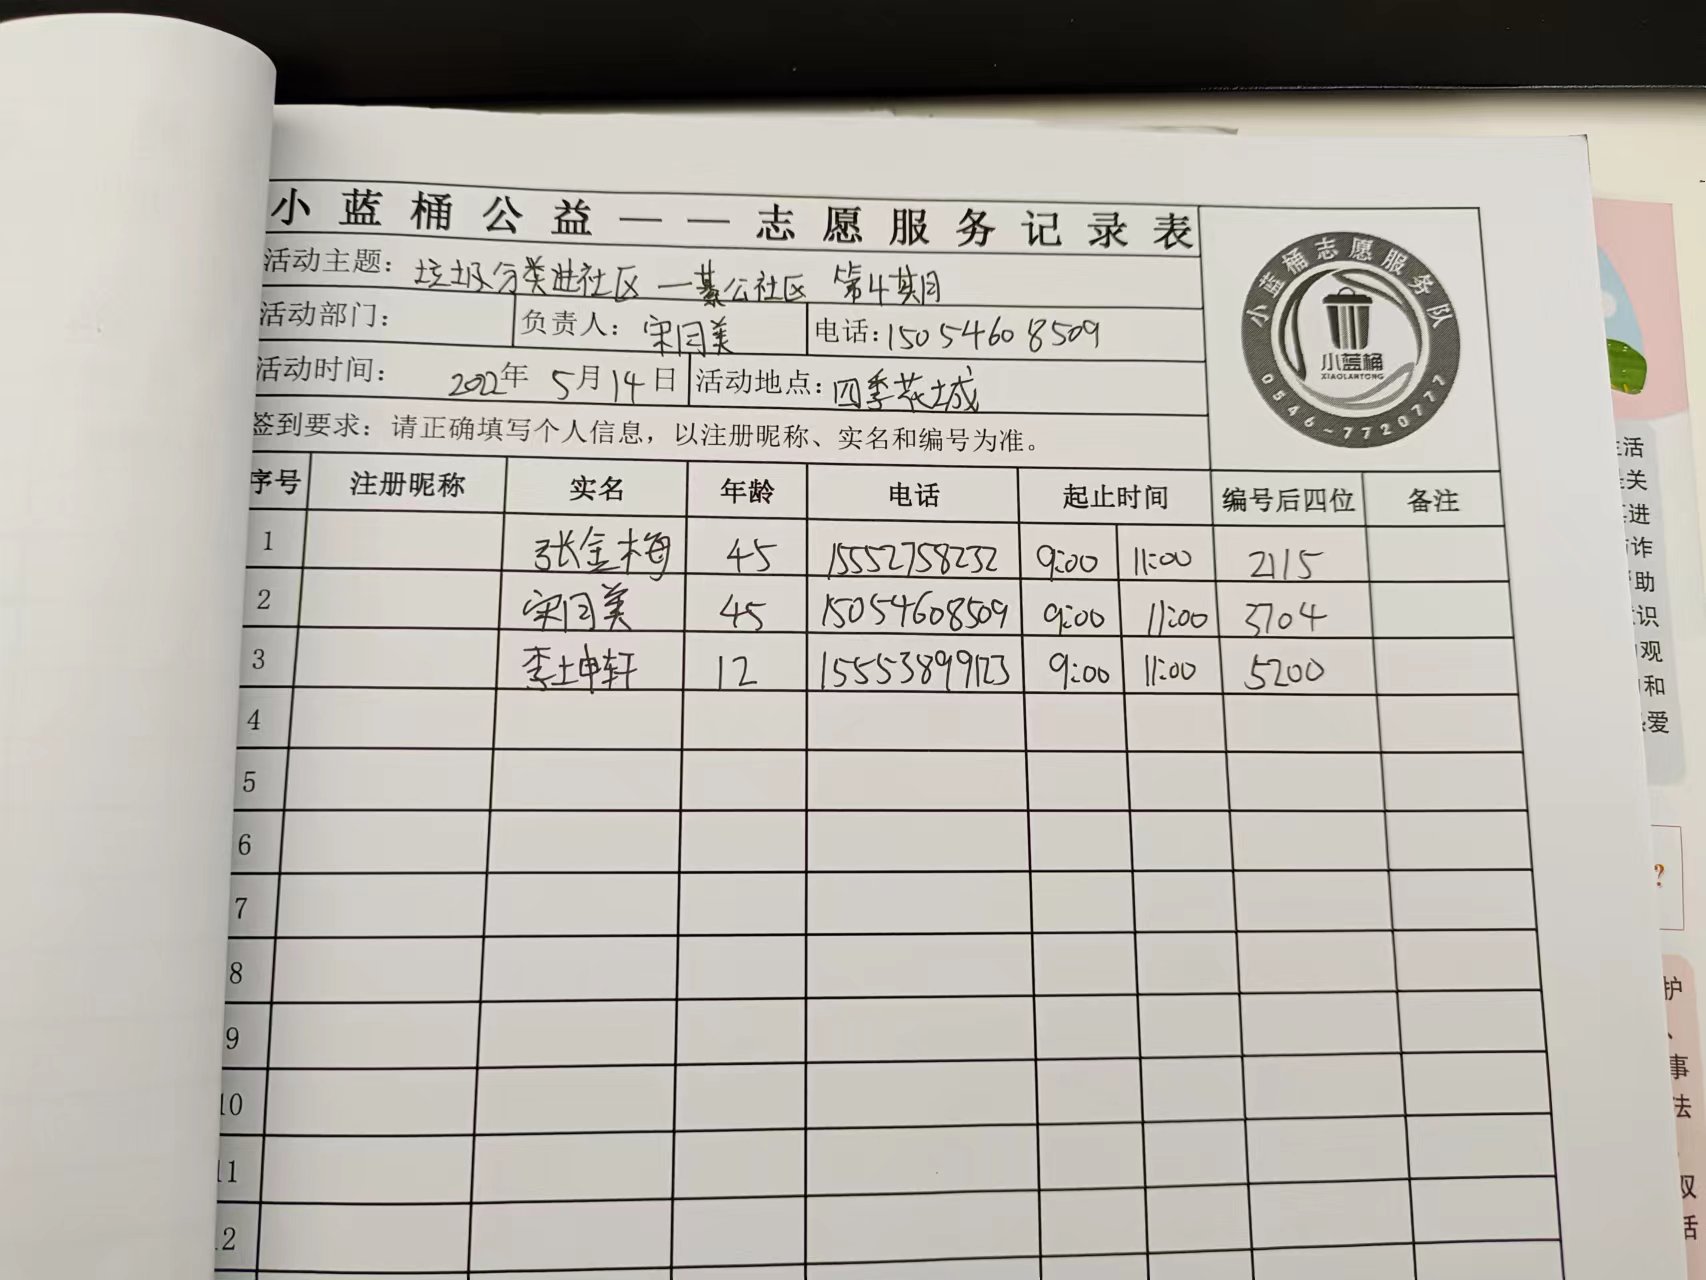 小蓝桶公益——志愿服务记录表
活动主题：垃圾分类进社区—綦公社区 第4期
活动部门： 负责人：宋同美 电话：15054608509
活动时间： 2022年 5月14日 活动地点：四季花城
签到要求：请正确填写个人信息，以注册昵称、实名和编号为准。
小蓝桶志愿服务队
小蓝桶
XIAOLANTONG
0546-7720777
序号 注册昵称 实名 年龄 电话 起止时间 编号后四位 备注
1 张金梅 45 15552758232 9:00 11:00 2115
2 宋同美 45 15054608509 9:00 11:00 3704
3 李坤轩 12 15553899123 9:00 11:00 5200
4
5
6
7
8
9
10
11
12
活
关
进
诈
助
识
观
和
爱
?
护
、
事
法
双
活